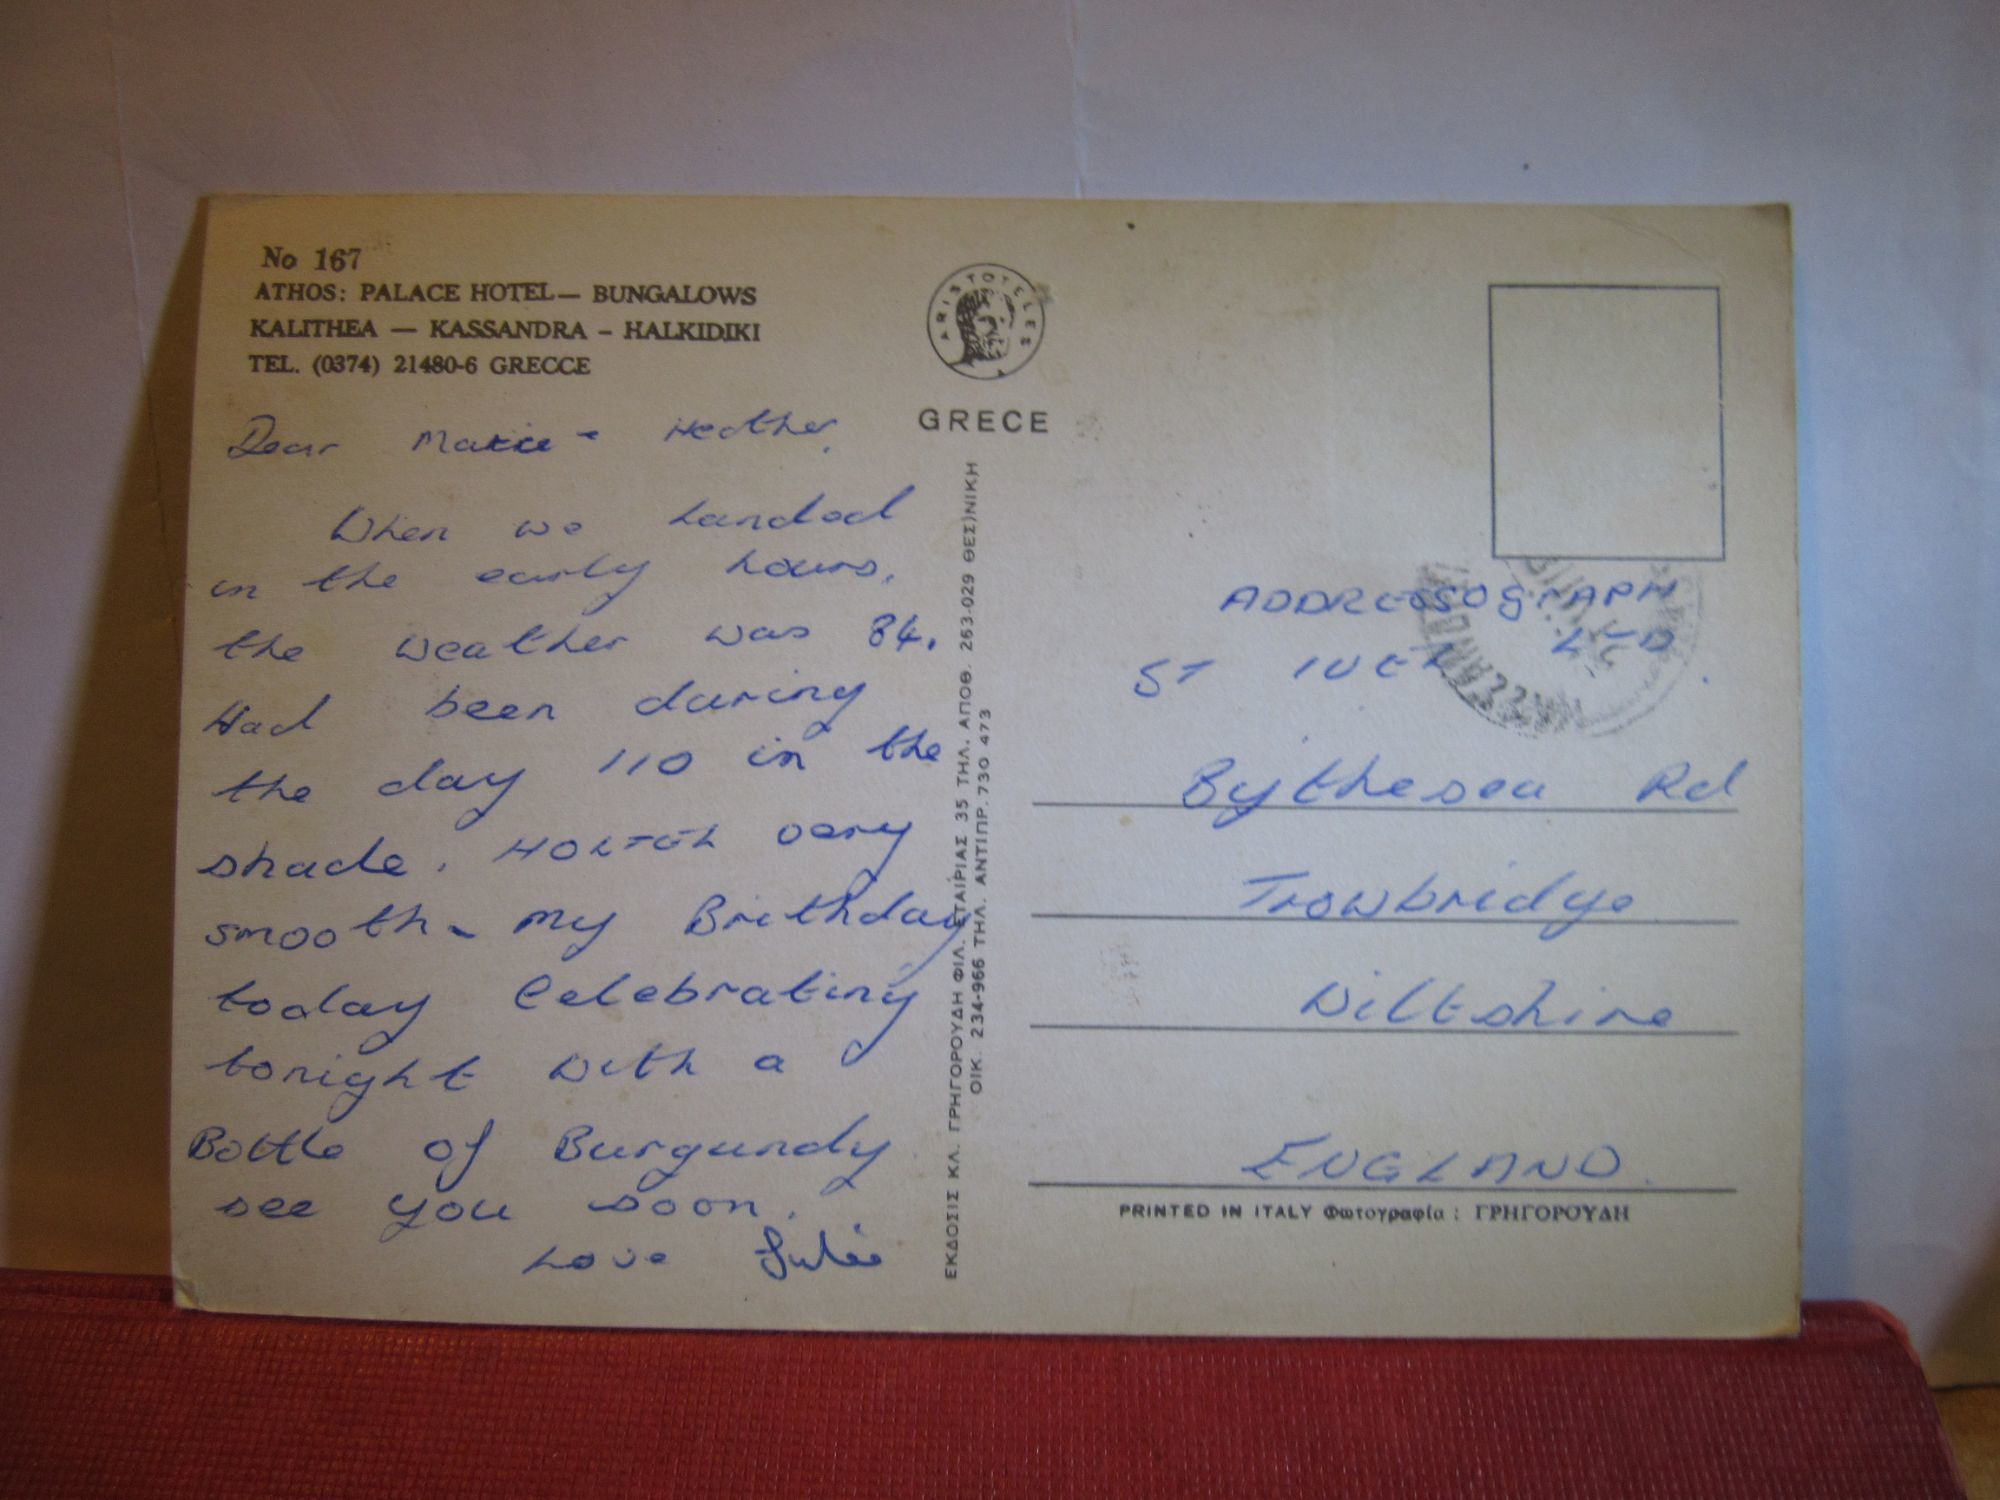 No 167
ATHOS: PALACE HOTEL— BUNGALOWS
KALITHEA — KASSANDRA – HALKIDIKI
TEL. (0374) 21480-6 GRECCE
Dear Marie - Heather,
When we landed
in the early hours,
the weather was 84.
Had been during
the day 110 in the
shade. very
smooth - my Brithday
today Celebrating
tonight with a
Bottle of Burgundy
see you soon.
Love Julie
ARISTOTELES
GRECE
ΕΚΔΟΣΙΣ ΚΛ. ΓΡΗΓΟΡΟΥΔΗ ΦΙΛ. ΕΤΑΙΡΙΑΣ 35 ΤΗΛ. ΑΠΟΘ. 263-029 ΘΕΣ)ΝΙΚΗ
ΟΙΚ. 234-966 ΤΗΛ. ΑΝΤΙΠΡ. 730 473
ADDRESSOGRAPH
LTD
ST IVES
Bythesea Rd
Trowbridge
Wiltshire
ENGLAND.
PRINTED IN ITALY Φωτογραφία : ΓΡΗΓΟΡΟΥΔΗ